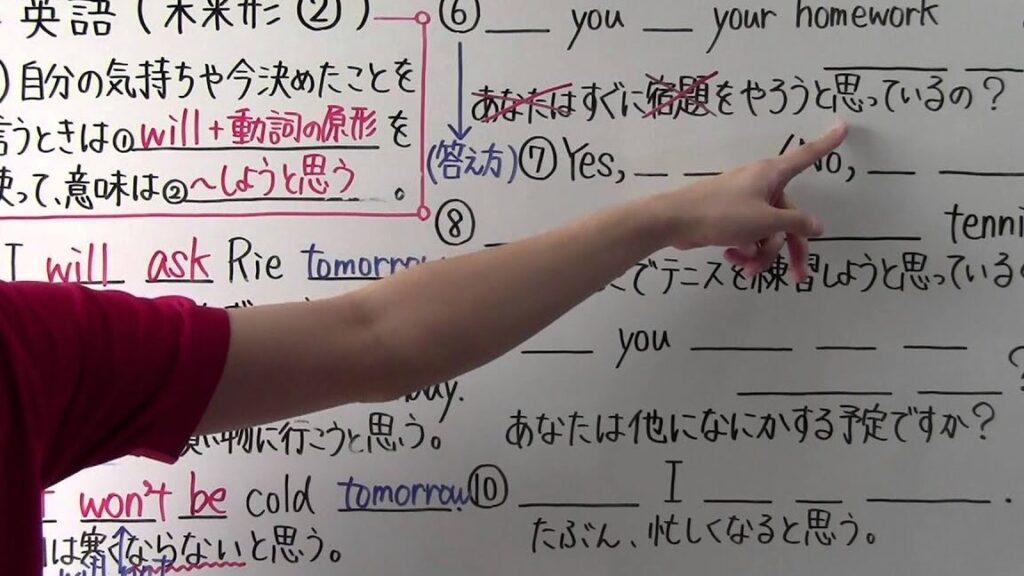 英語（未来形②）
自分の気持ちや今決めたことを
言うときは①will+動詞の原形を
使って、意味は②～しようと思う。
I will ask Rie tomorrow
buy.
買い物に行こうと思う。
won't be cold tomorrow.
は寒くならないと思う。
⑥ ___ you ___ your homework
___ ___
あなたはすぐに宿題をやろうと思っているの？
(答え方) ⑦ Yes, ___ ___ / No, ___ ___
⑧ ___ ___ tenni
でテニスを練習しようと思っているの
___ you ___ ___ ___
___ ___ ?
あなたは他になにかする予定ですか？
⑩ ___ I ___ ___ ___.
たぶん、忙しくなると思う。